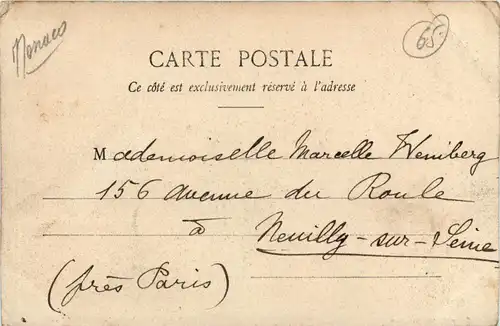 Monaco
65
CARTE POSTALE
Ce côté est exclusivement réservé à l'adresse
Mademoiselle Marcelle Weniberg
156 avenue du Roule
à Neuilly-sur-Seine
(près Paris)